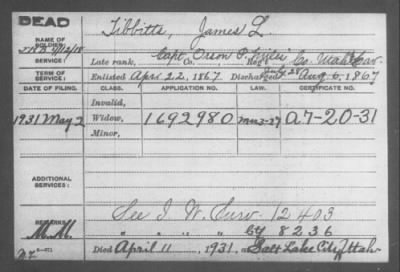 DEAD
NAME OF SOLDIER: Tibbitts, James L.
SERVICE: Late rank, Capt. Orson P. Miles' Co. Utah Cav.
Co. Reg't
TERM OF SERVICE: Enlisted Apr. 22, 1867 Discharged July 28 Aug. 6, 1867
DATE OF FILING. CLASS. APPLICATION NO. LAW. CERTIFICATE NO.
Invalid,
1931 May 2 Widow, 1692980 A7-20-31
Minor,
ADDITIONAL SERVICES:
See I. W. Surv. 12403
REMARKS " " " " 8236
Died April 11, 1931, at Salt Lake City, Utah